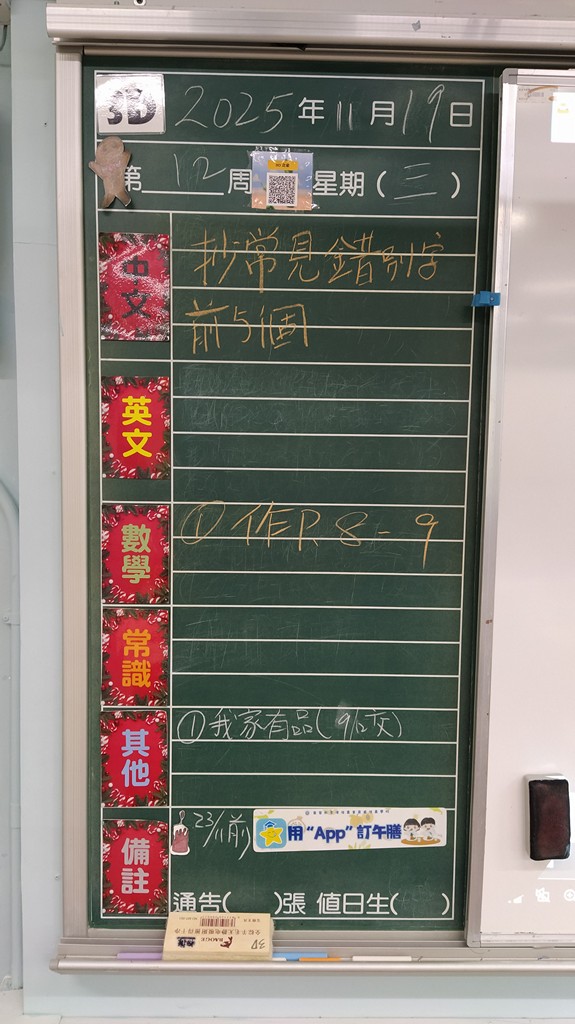 3D 2025年11月19日
第12周 星期(三)
中文 抄常見錯別字
前5個
英文
數學 ①作P.8-9
常識
其他 ①我家有品(9/12交)
備註 23/11前 用“App”訂午膳
通告( )張 值日生( )
BAOGE 3D